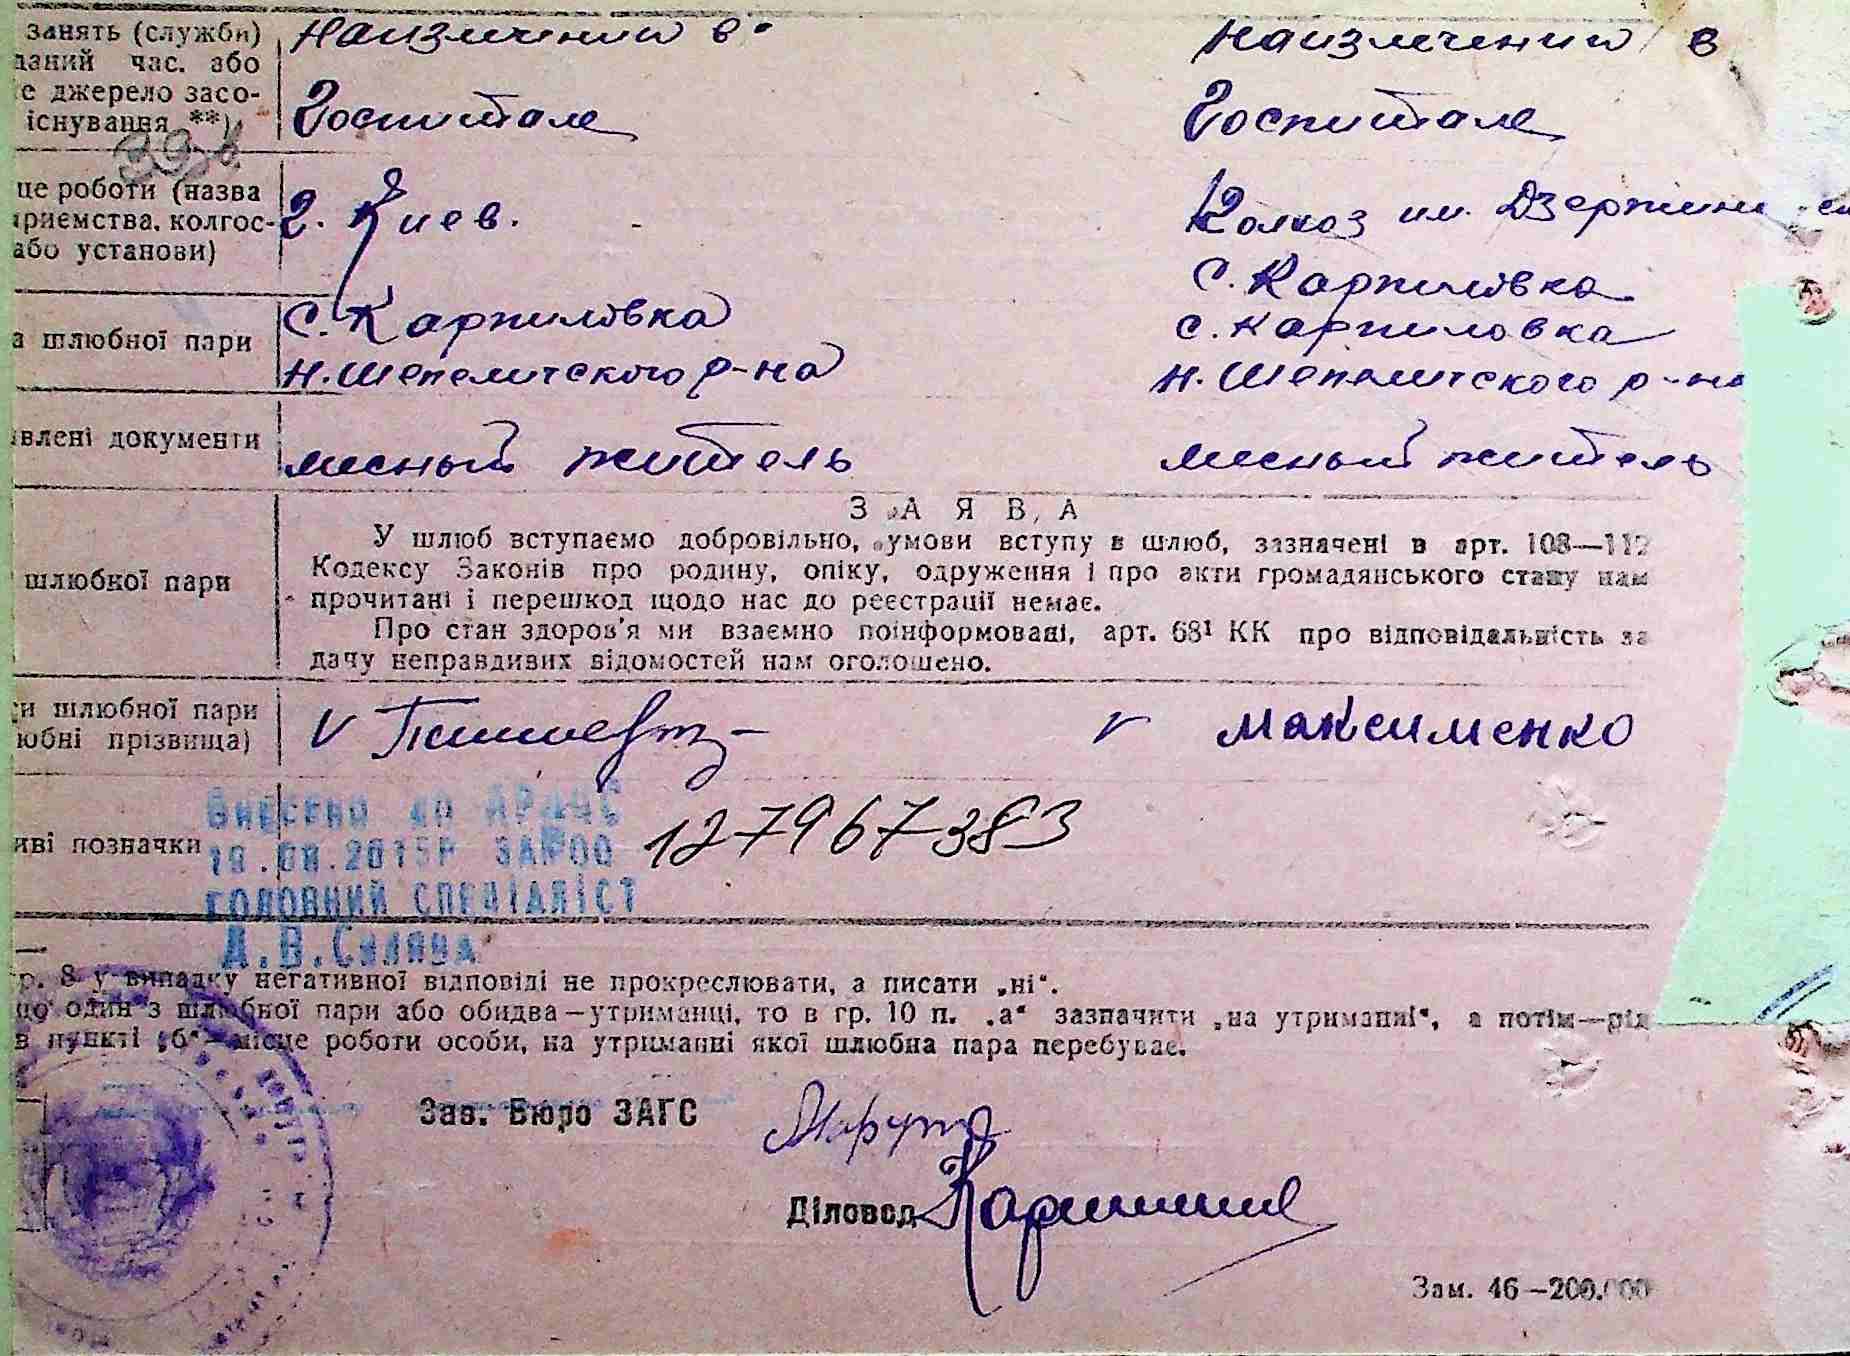 занять (служби) Наизличении в Наизлечении в
даний час. або
е джерело засо- Госпитале Госпитале
існування **)
це роботи (назва
приємства, колгос- г. Киев. Колхоз им. Дзержинс
або установи)
с. Карпиловка
а шлюбної пари с. Карпиловка с. Карпиловка
Н. Шепеличского р-на Н. Шепеличского р-на
явлені документи месный житель месный житель
З А Я В А
У шлюб вступаємо добровільно, умови вступу в шлюб, зазначені в арт. 108—112
шлюбної пари Кодексу Законів про родину, опіку, одруження і про акти громадянського стану нам
прочитані і перешкод щодо нас до реєстрації немає.
Про стан здоров'я ми взаємно поінформовані, арт. 68¹ КК про відповідальність за
дачу неправдивих відомостей нам оголошено.
си шлюбної пари
юбні прізвища) V V Максименко
Внесено до ДРАЦС
иві позначки 19.08.2015р ЗА№00 127967383
ГОЛОВНИЙ СПЕЦІАЛІСТ
гр. 8 у випадку негативної відповіді не прокреслювати, а писати „ні“.
що один з шлюбної пари або обидва—утриманці, то в гр. 10 п. „а“ зазначити „на утриманні“, а потім—рід
в пункті „б“—місце роботи особи, на утриманні якої шлюбна пара перебуває.
Зав. Бюро ЗАГС
Діловод
Зам. 46—200.000